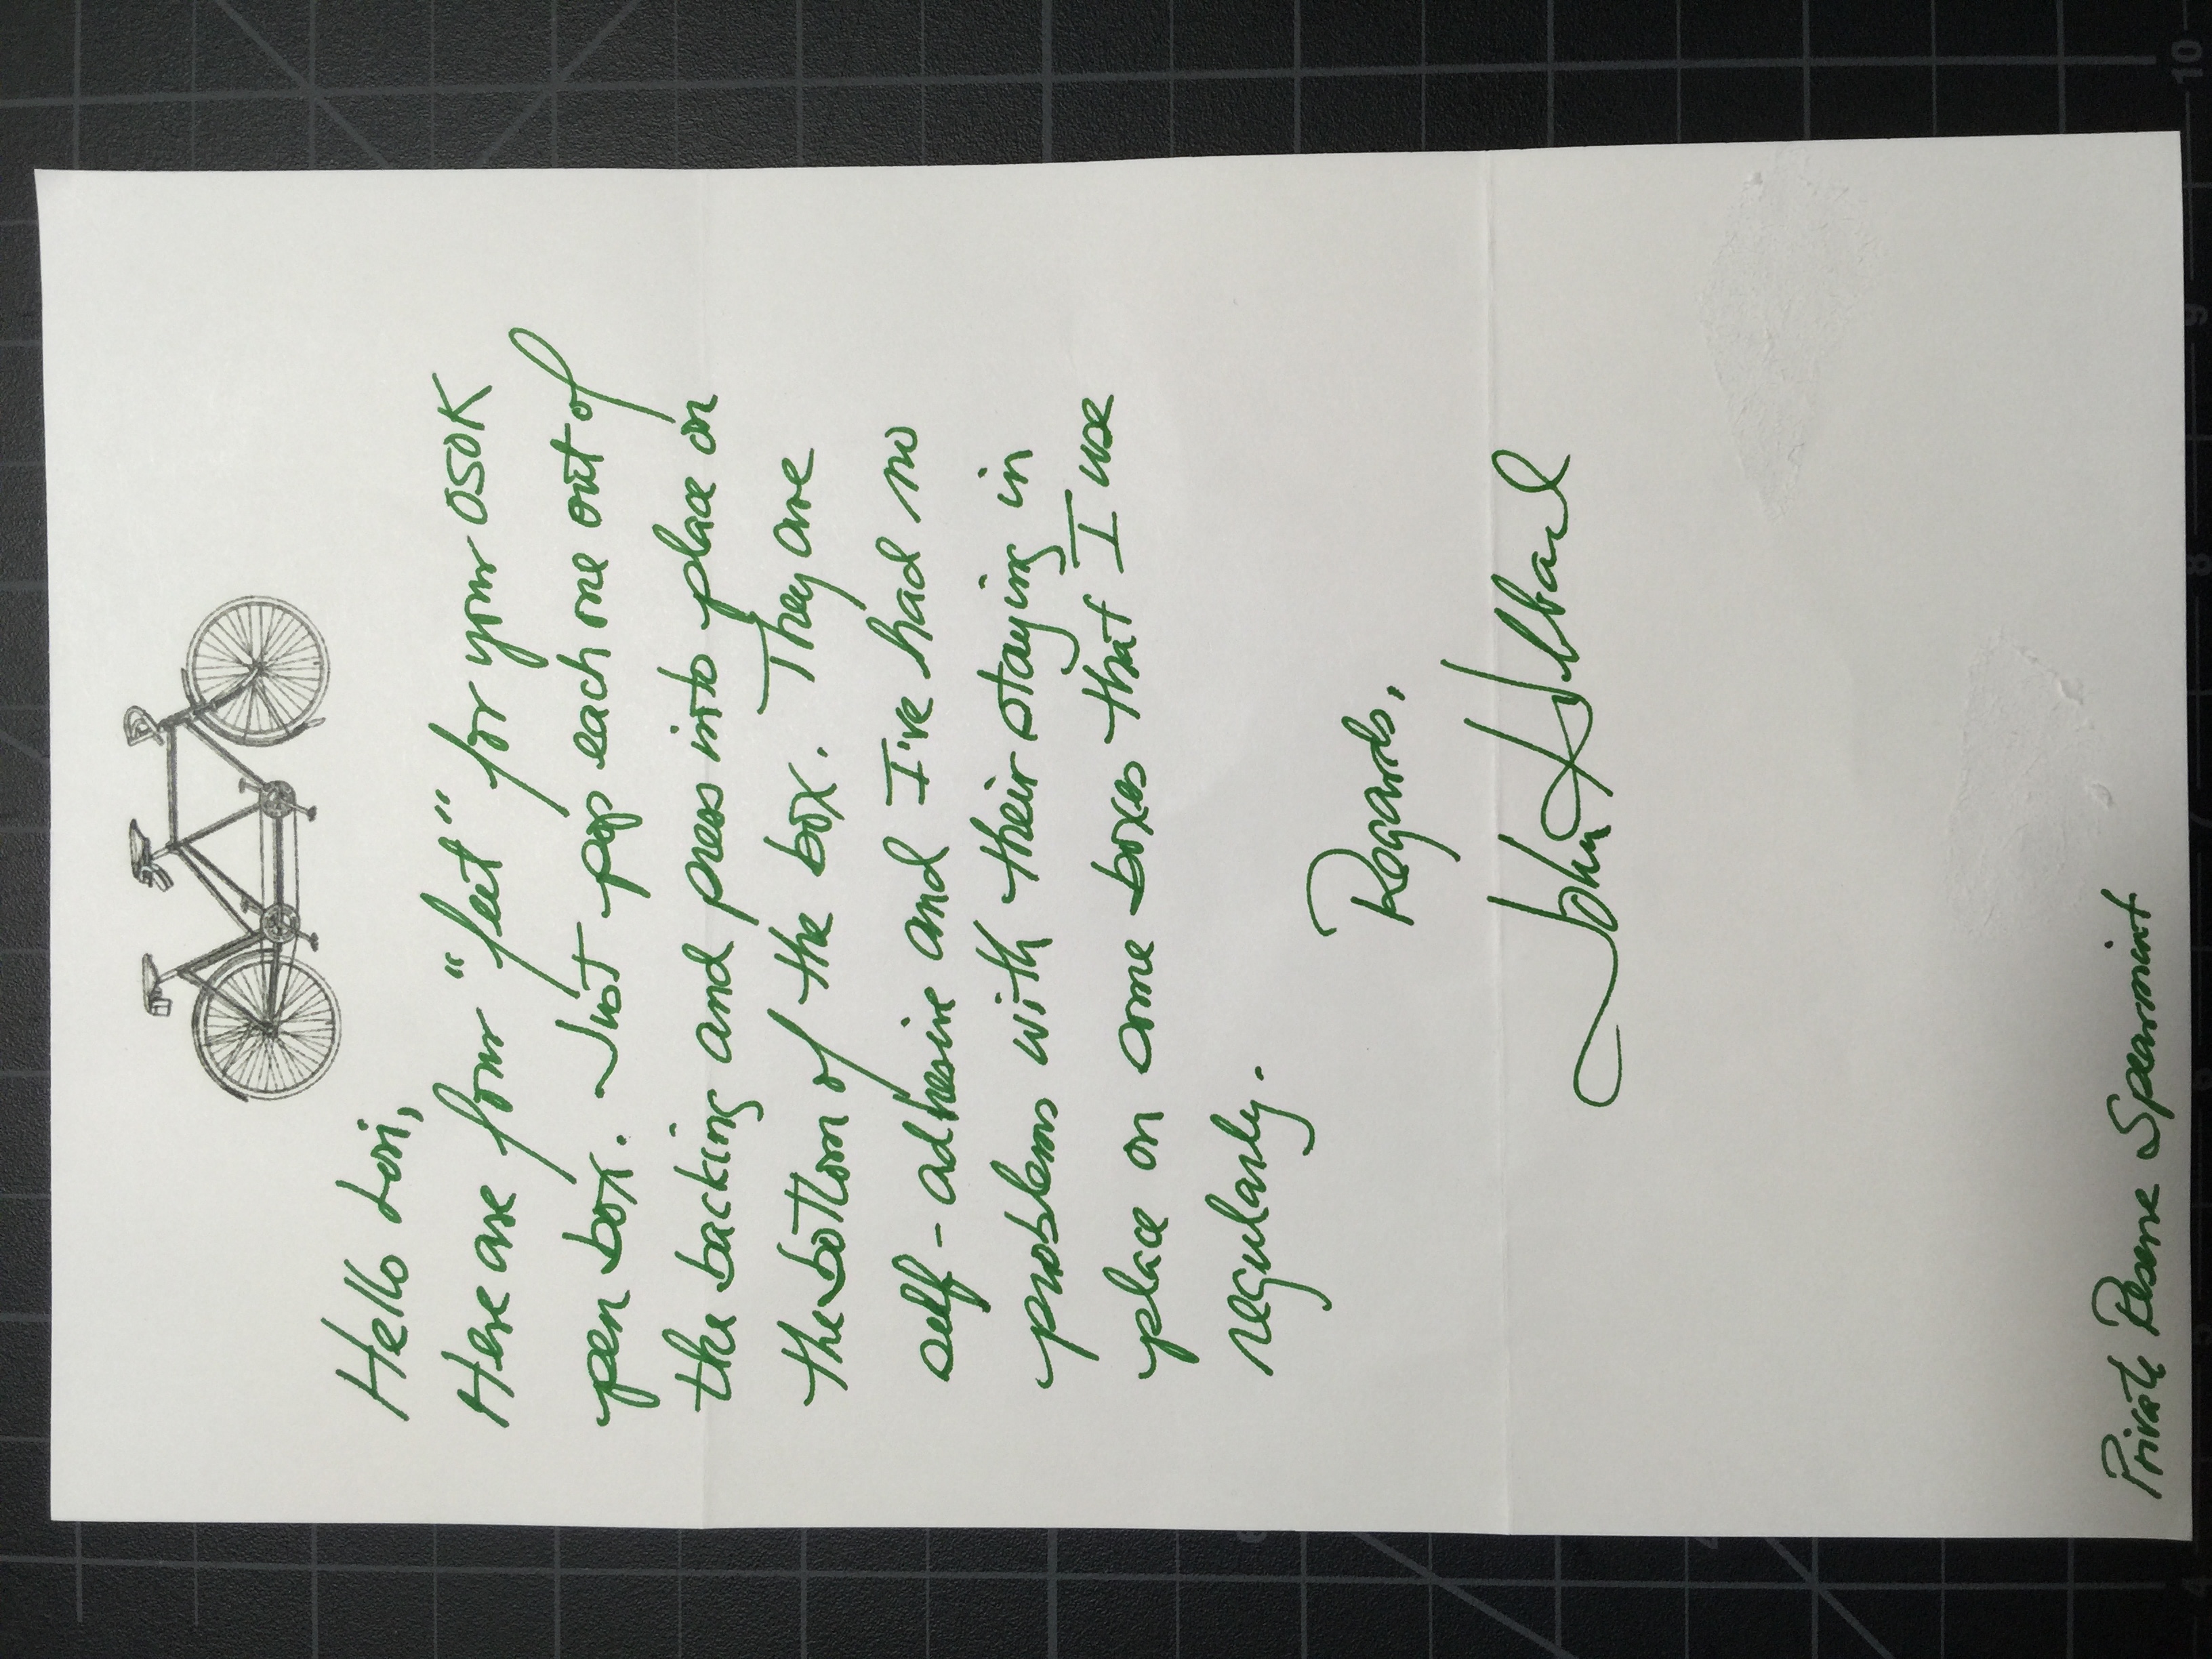 Hello Lori,
Here are four "feet" for your OSOK
pen box. Just pop each one out of
the backing and press into place on
the bottom of the box. They are
self-adhesive and I've had no
problems with their staying in
place on ome boxes that I use
regularly.
Regards,
John Hubbard
Private Reserve Spearmint
10
9
8